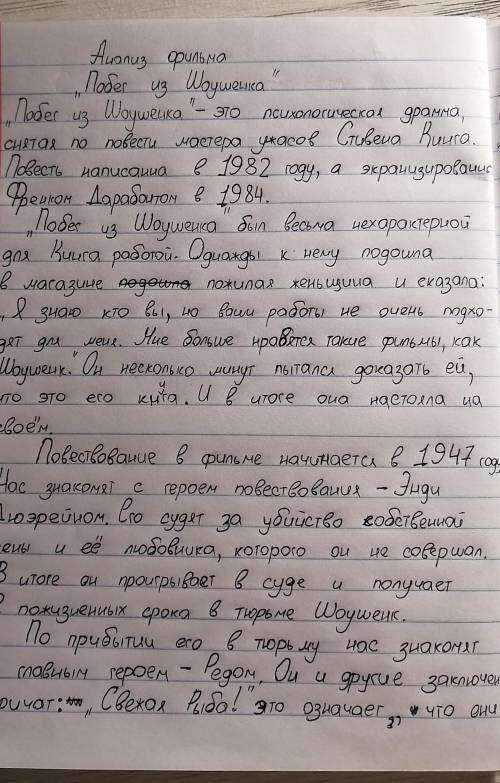 Анализ фильма
„Побег из Шоушенка"
„Побег из Шоушенка" - это психологическая драмма,
снятая по повести мастера ужасов Стивена Кинга.
Повесть написанна в 1982 году, а экранизированна
Френком Дарабонтом в 1984.
„Побег из Шоушенка" был весьма нехарактерной
для Кинга работой. Однажды к нему подошла
в магазине подошла пожилая женьщина и сказала:
„Я знаю кто вы, но ваши работы не очень подхо-
дят для меня. Мне больше нравятся такие фильмы, как
Шоушенк." Он несколько минут пытался доказать ей,
что это его книга. И в итоге она настояла на
своём.
Повествование в фильме начинается в 1947 году
Нас знакомят с героем повествования - Энди
Дюэрейном. Его судят за убийство собственной
жены и её любовника, которого он не совершал.
В итоге он проигрывает в суде и получает
2 пожизненных срока в тюрьме Шоушенк.
По прибытии его в тюрьму нас знакомят
главным героем - Редом. Он и другие заключен
кричат: „Свежая Рыба!" Это означает, что они